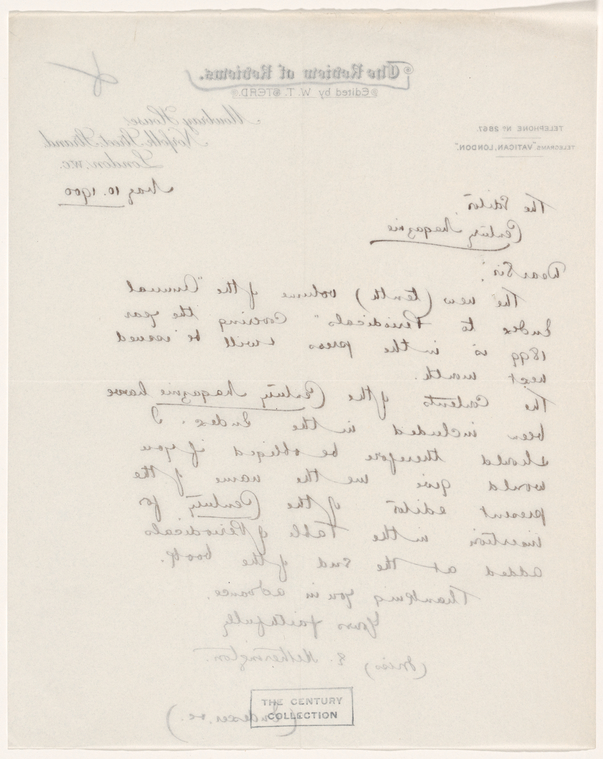 The Review of Reviews.
Edited by W. T. STEAD.
Mowbray House,
Norfolk Street, Strand,
London, W.C.
TELEPHONE No 2867.
TELEGRAMS, "VATICAN, LONDON."
May 10. 1900
The Editor,
Century Magazine
Dear Sir,
The new (tenth) volume of the "Annual
Index to Periodicals" covering the year
1899 is in the press & will be issued
next month.
The contents of the Century Magazine have
been included in the Index. I
should therefore be obliged if you
would give me the name of the
present editor of the Century for
insertion in the Table of Periodicals
added at the end of the book.
Thanking you in advance.
Yours faithfully
(Miss) E. Hetherington.
(Indexer, &c.)
THE CENTURY
COLLECTION